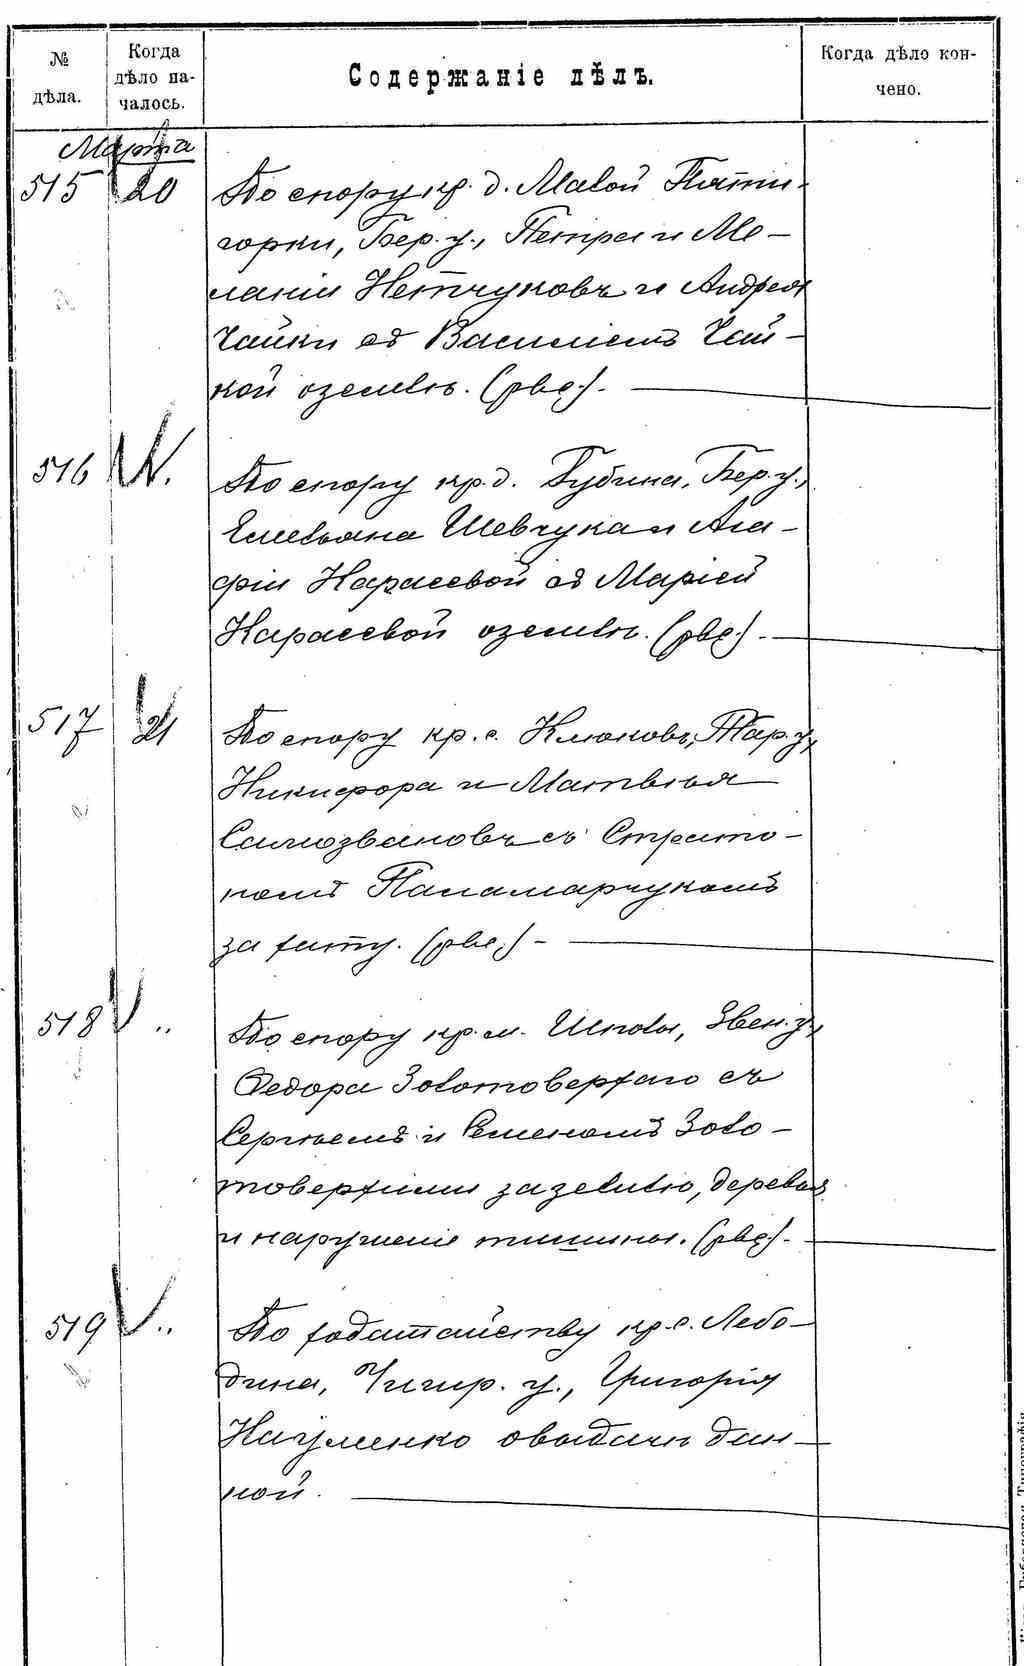 № дѣла.
Когда дѣло началось.
Содержаніе дѣлъ.
Когда дѣло кончено.
Марта
515 20 По спору кр. д. Малой Пяти-
горки, Бер. у., Петра и Ме-
ланіи Нетчуковъ и Андрея
Чайки съ Василіемъ Чай-
кой о землѣ. (рвс.). —
516 По спору кр. д. Бубина, Бер. у.,
Емельяна Шевчука и Ага-
фіи Карасевой съ Маріей
Карасевой о землѣ. (рвс.). —
517 21 По спору кр. с. Клюковъ, Тар. у.,
Никифора и Матвѣя
Самозвановъ съ Страто-
номъ Паламарчукомъ
за хату. (рвс.) —
518 „ По спору кр. м. Шполы, Звен. у.,
Федора Золотоверхаго съ
Сергѣемъ и Семеномъ Золо-
товерхими за землю, деревья
и нарушеніе тишины. (рвс.). —
519 „ По ходатайству кр. с. Лебе-
дина, Чигир. у., Григорія
Науменко о выдачѣ дан-
ной. —
Типографія